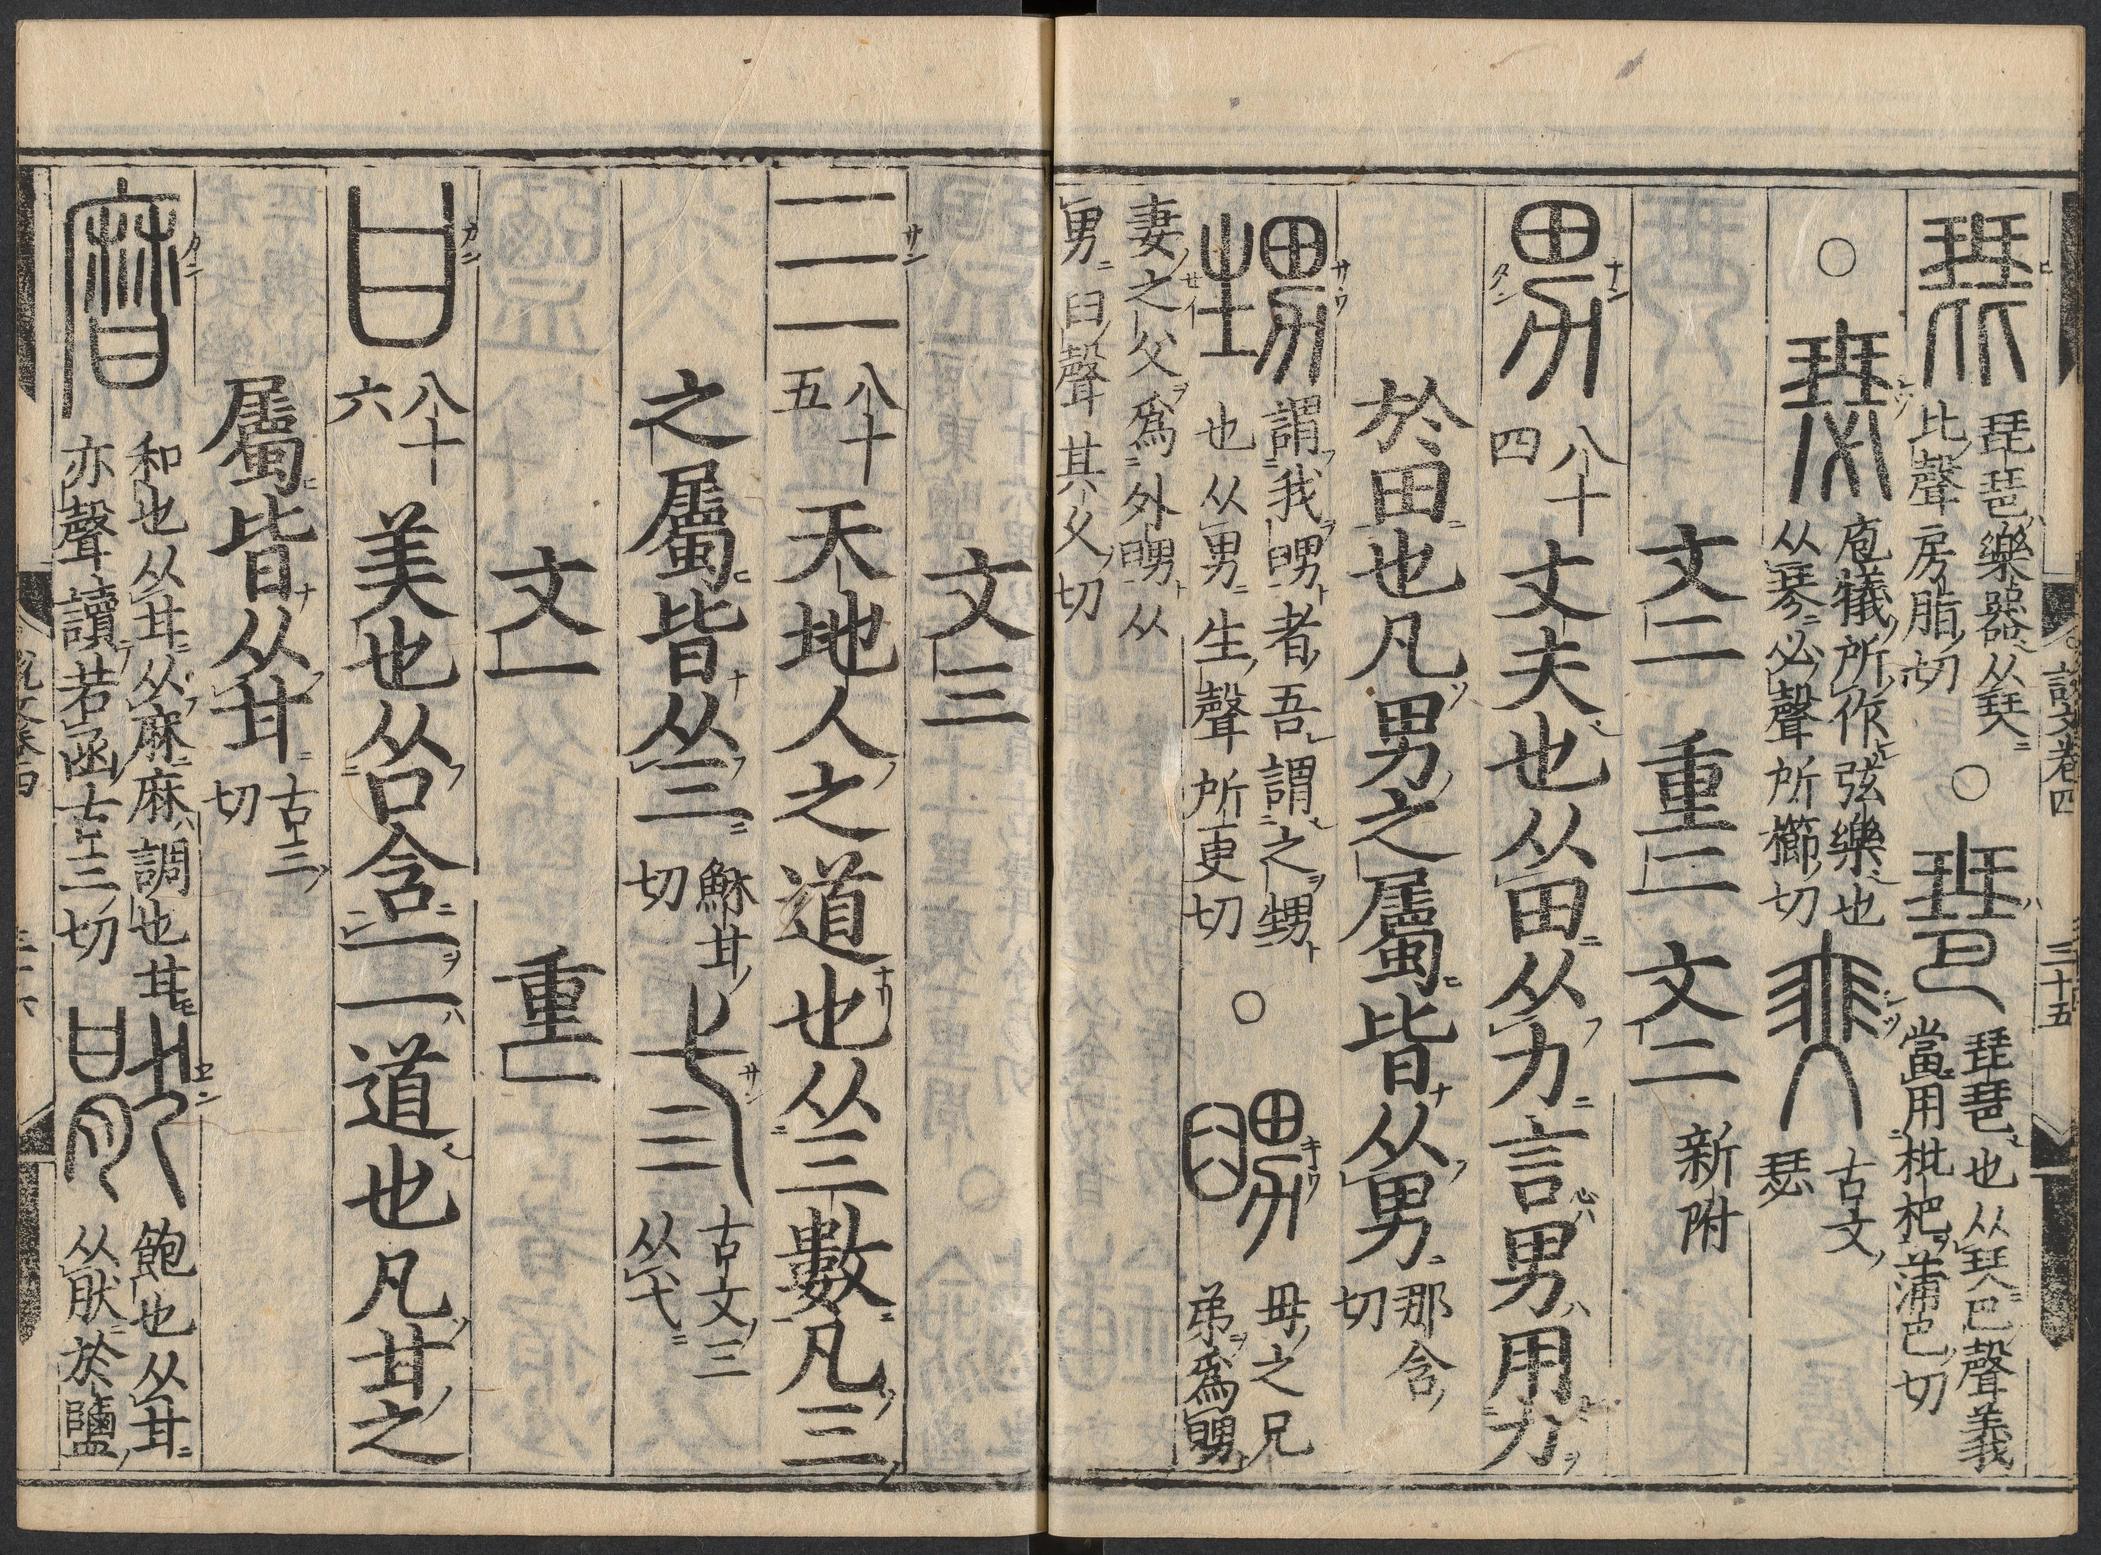 琵 琵琶樂器从珡
比聲房脂切
○
琶 琵琶也从珡巴聲義
當用枇杷蒲巴切
○
瑟 庖犧所作弦樂也
从琴必聲所櫛切
古文
瑟
文二 重二 文二 新附
男 八十四 丈夫也从田从力言男用力
於田也凡男之屬皆从男 那含
切
甥 謂我甥者吾謂之甥
也从男生聲所更切
○
舅 母之兄
弟爲甥
妻之父爲外甥从
男臼聲其父切
文三
三 八十五 天地人之道也从三數凡三
之屬皆从三 穌甘
切
弎 古文三
从弋
文一 重一
甘 八十六 美也从口含一一道也凡甘之
屬皆从甘 古三
切
𪎭 和也从甘从麻麻調也甘
亦聲讀若函古三切
猒 飽也从甘
从肰於鹽
說文卷四 三十五